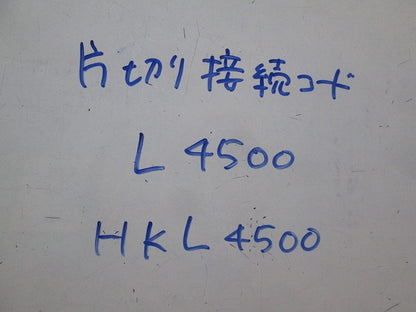 片切り接続コード
L 4500
HKL4500